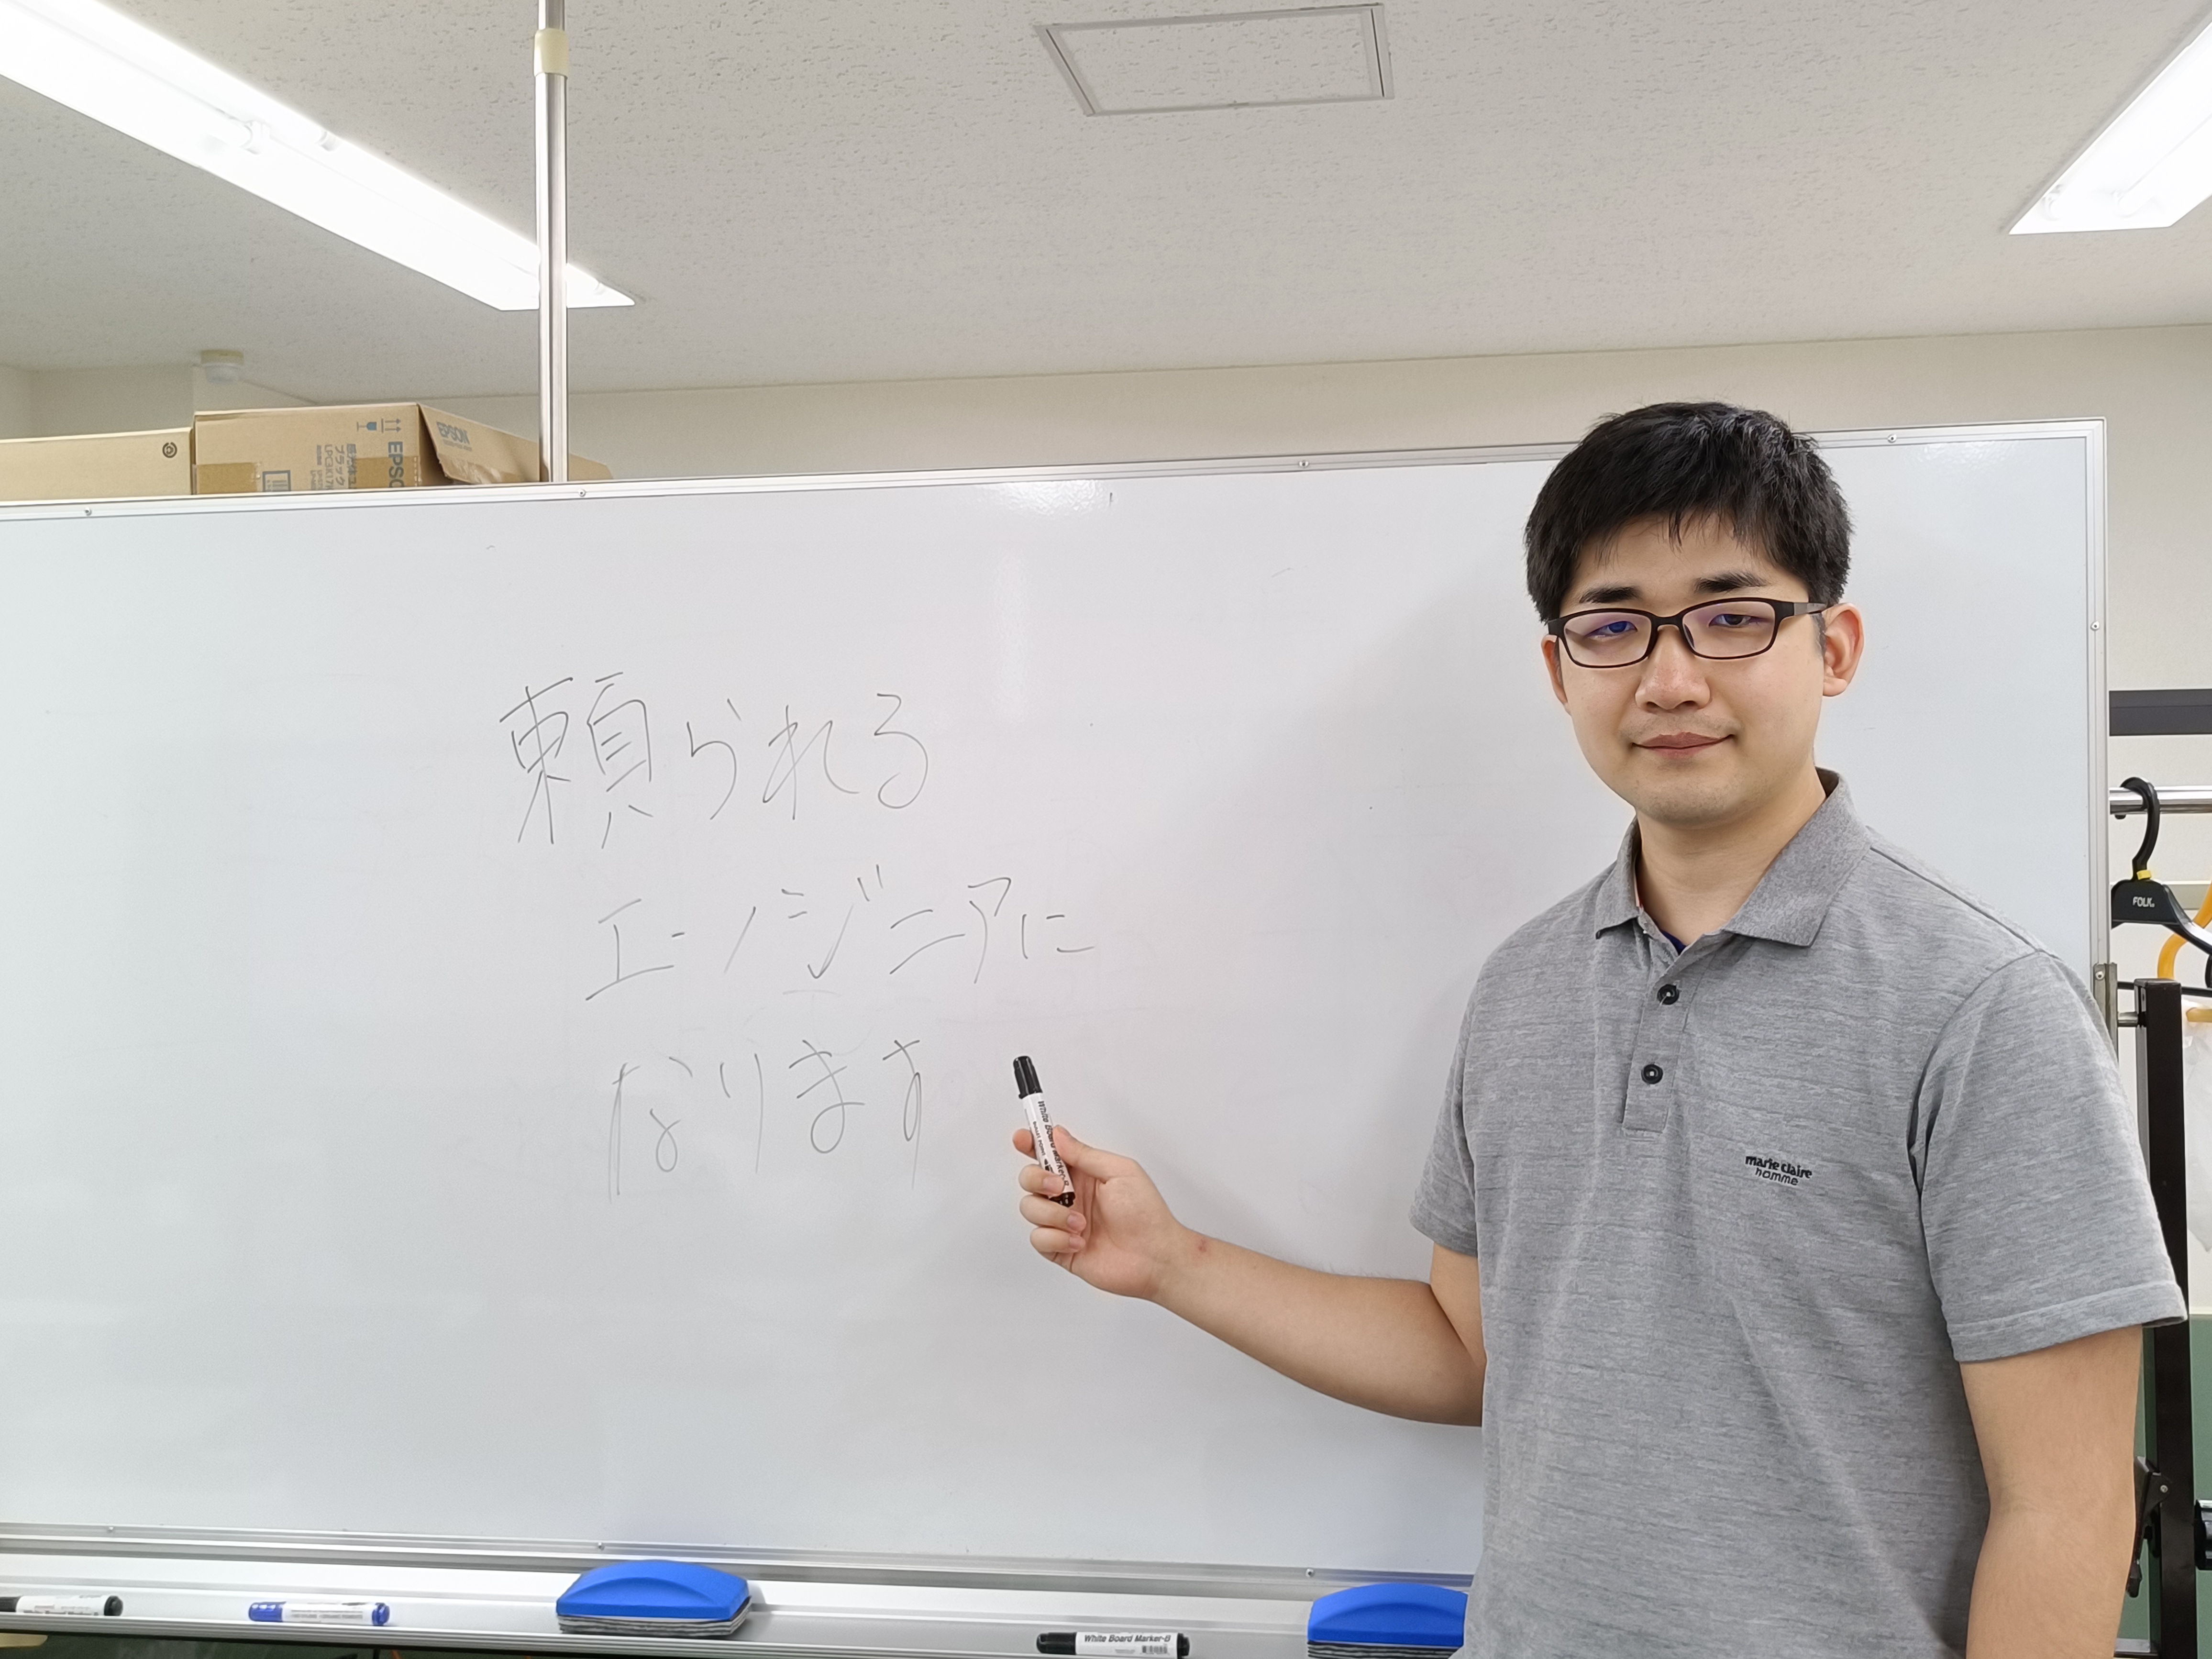 EPSON
EPSO
ブラック
頼られる
エンジニアに
なります
White Board Marker-B
marie claire
homme
FOLK
White Board Marker-B